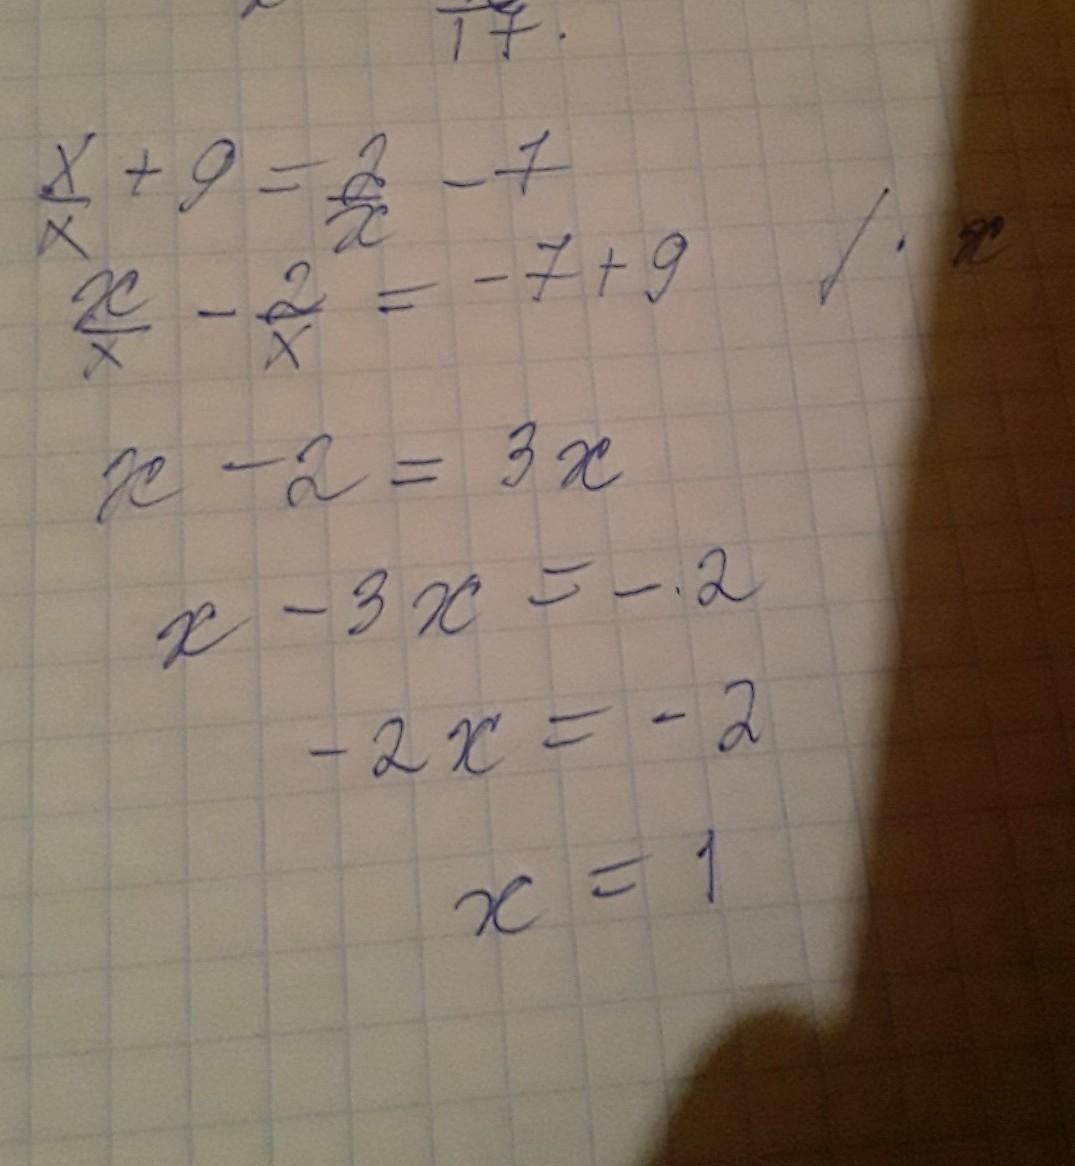 17.
x/x + 9 = 2/x - 7
x/x - 2/x = -7 + 9 / · x
x - 2 = 3x
x - 3x = -.2
-2x = -2
x = 1